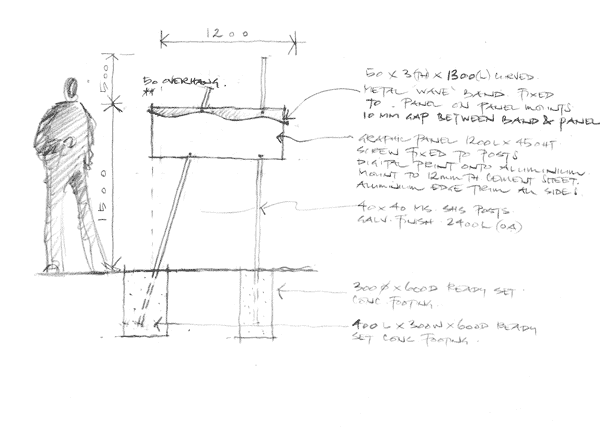 1200
50 OVERHANG.
500
1500
50 X 3(TH) X 1300(L) CURVED
METAL 'WAVE' BAND FIXED
TO PANEL ON PANEL MOUNTS
10 MM GAP BETWEEN BAND & PANEL
GRAPHIC PANEL 1200L X 450HT
SCREW FIXED TO POSTS
DIGITAL PRINT ONTO ALUMINIUM
MOUNT TO 12MM TH CEMENT SHEET.
ALUMINIUM EDGE TRIM ALL SIDES.
40 X 40 MS. SHS POSTS.
GALV. FINISH 2400L (OA)
300Ø X 600D READY SET
CONC FOOTING.
400L X 300W X 600D READY
SET CONC FOOTING.